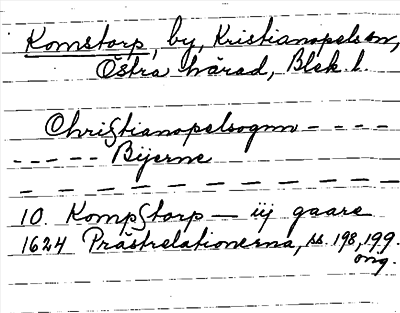 Komstorp, by, Kristianopels sn,
Östra härad, Blek. l.
Chriſtianopelsognn - - - -
- - - - - Bijerne
- - - - - - - - - - - - -
10. Kompſtorp — iij gaare
1624 Prästrelationerna, ss. 198, 199.
orig.